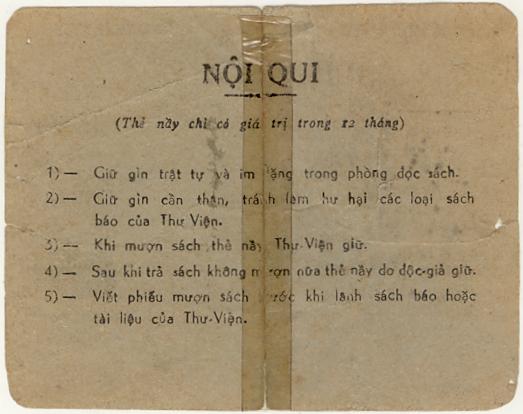 NỘI QUI
(Thẻ nầy chỉ có giá trị trong 12 tháng)
1) — Giữ gìn trật tự và im lặng trong phòng đọc sách.
2) — Giữ gìn cẩn thận, tránh làm hư hại các loại sách
báo của Thư Viện.
3) — Khi mượn sách thẻ nầy Thư-Viện giữ.
4) — Sau khi trả sách không mượn nữa thẻ nầy do độc-giả giữ.
5) — Viết phiếu mượn sách trước khi lãnh sách báo hoặc
tài liệu của Thư-Viện.